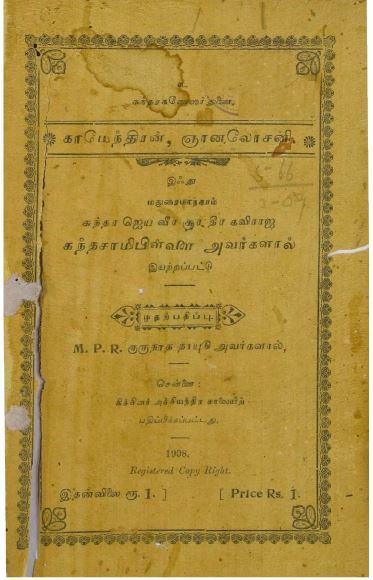 உ
சுந்தரகணேஸர் துணை.
காமேந்திரன், ஞானலோசனி,
இஃது
மதுரைமாநகரம்
சுந்தர ஜெய வீர சூர தீர கவிராஜ
கந்தசாமிபிள்ளை அவர்களால்
இயற்றப்பட்டு
முதற்பதிப்பு.
M. P. R. குருநாத நாயுடு அவர்களால்,
சென்னை:
கிச்சினர் அச்சியந்திர சாலையிற்
பதிப்பிக்கப்பட்டது.
1908.
Registered Copy Right.
இதன்விலை ரூ. 1. ] [ Price Rs. 1.